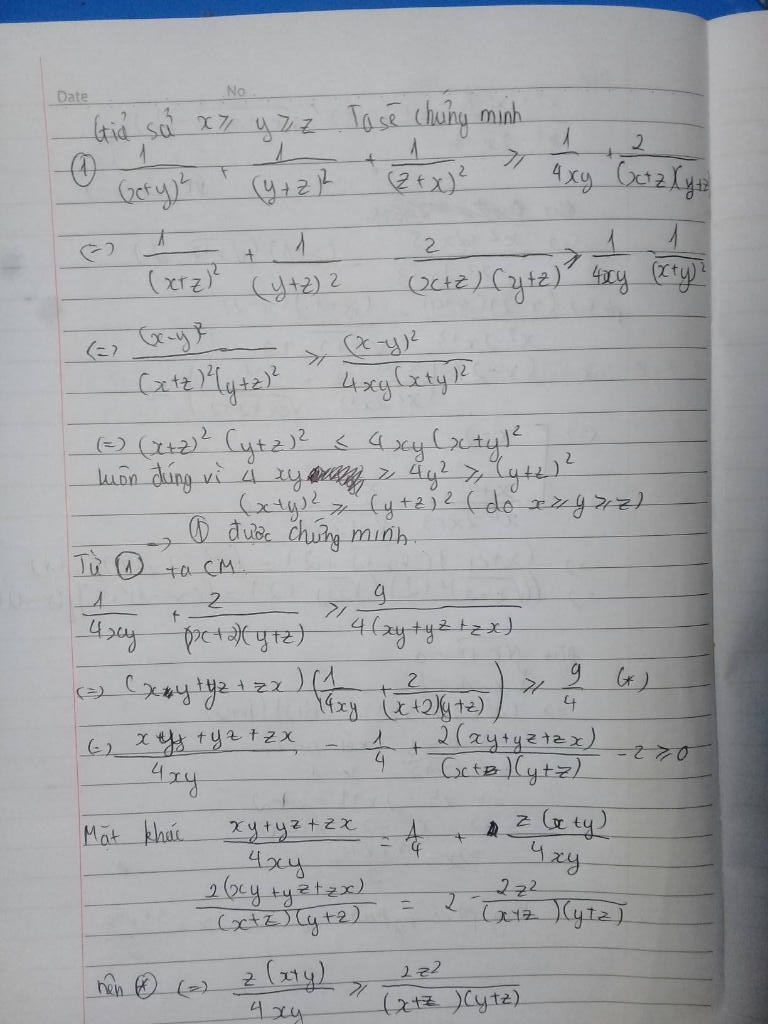 Date No
Giả sử x ≥ y ≥ z. Ta sẽ chứng minh
① 1/(x+y)² + 1/(y+z)² + 1/(z+x)² ≥ 1/4xy + 2/(x+z)(y+z
(=) 1/(x+z)² + 1/(y+z)2 2/(x+z)(y+z) ≥ 1/4xy 1/(x+y)²
(=) (x-y)²/(x+z)²(y+z)² ≥ (x-y)²/4xy(x+y)²
(=) (x+z)² (y+z)² ≤ 4xy(x+y)²
luôn đúng vì 4 xy ≥ 4y² ≥ (y+z)²
(x+y)² ≥ (y+z)² (do x ≥ y ≥ z)
→ ① được chứng minh.
Từ ① ta CM.
1/4xy + 2/(x+z)(y+z) ≥ 9/4(xy+yz+zx)
(=) (xy+yz+zx)(1/4xy + 2/(x+z)(y+z)) ≥ 9/4 (*)
(=) xy+yz+zx/4xy - 1/4 + 2(xy+yz+zx)/(x+z)(y+z) - 2 ≥ 0
Mặt khác xy+yz+zx/4xy = 1/4 + z(x+y)/4xy
2(xy+yz+zx)/(x+z)(y+z) = 2 - 2z²/(x+z)(y+z)
nên (*) (=) z(x+y)/4xy ≥ 2z²/(x+z)(y+z)